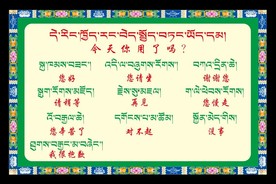 དེ་རིང་ཁྱོད་རང་བེད་སྤྱོད་བཏང་ཡོད་དམ།
今天你用了吗?
སྐུ་ཁམས་བཟང་། འདི་ལ་བཞུགས་རོགས། བཀའ་དྲིན་ཆེ།
您好 您请坐 谢谢您
སྒུག་རོགས་མཛོད། རྗེས་སུ་མཇལ། ག་ལེ་ཕེབས་རོགས།
请稍等 再见 您慢走
འོ་བརྒྱལ་ཆེ། དགོངས་པ་མ་ཚོམ། སྐྱོན་མེད་གིས།
您辛苦了 对不起 没事
ཐུགས་བཟང་མ་བཞེང་།
我很抱歉